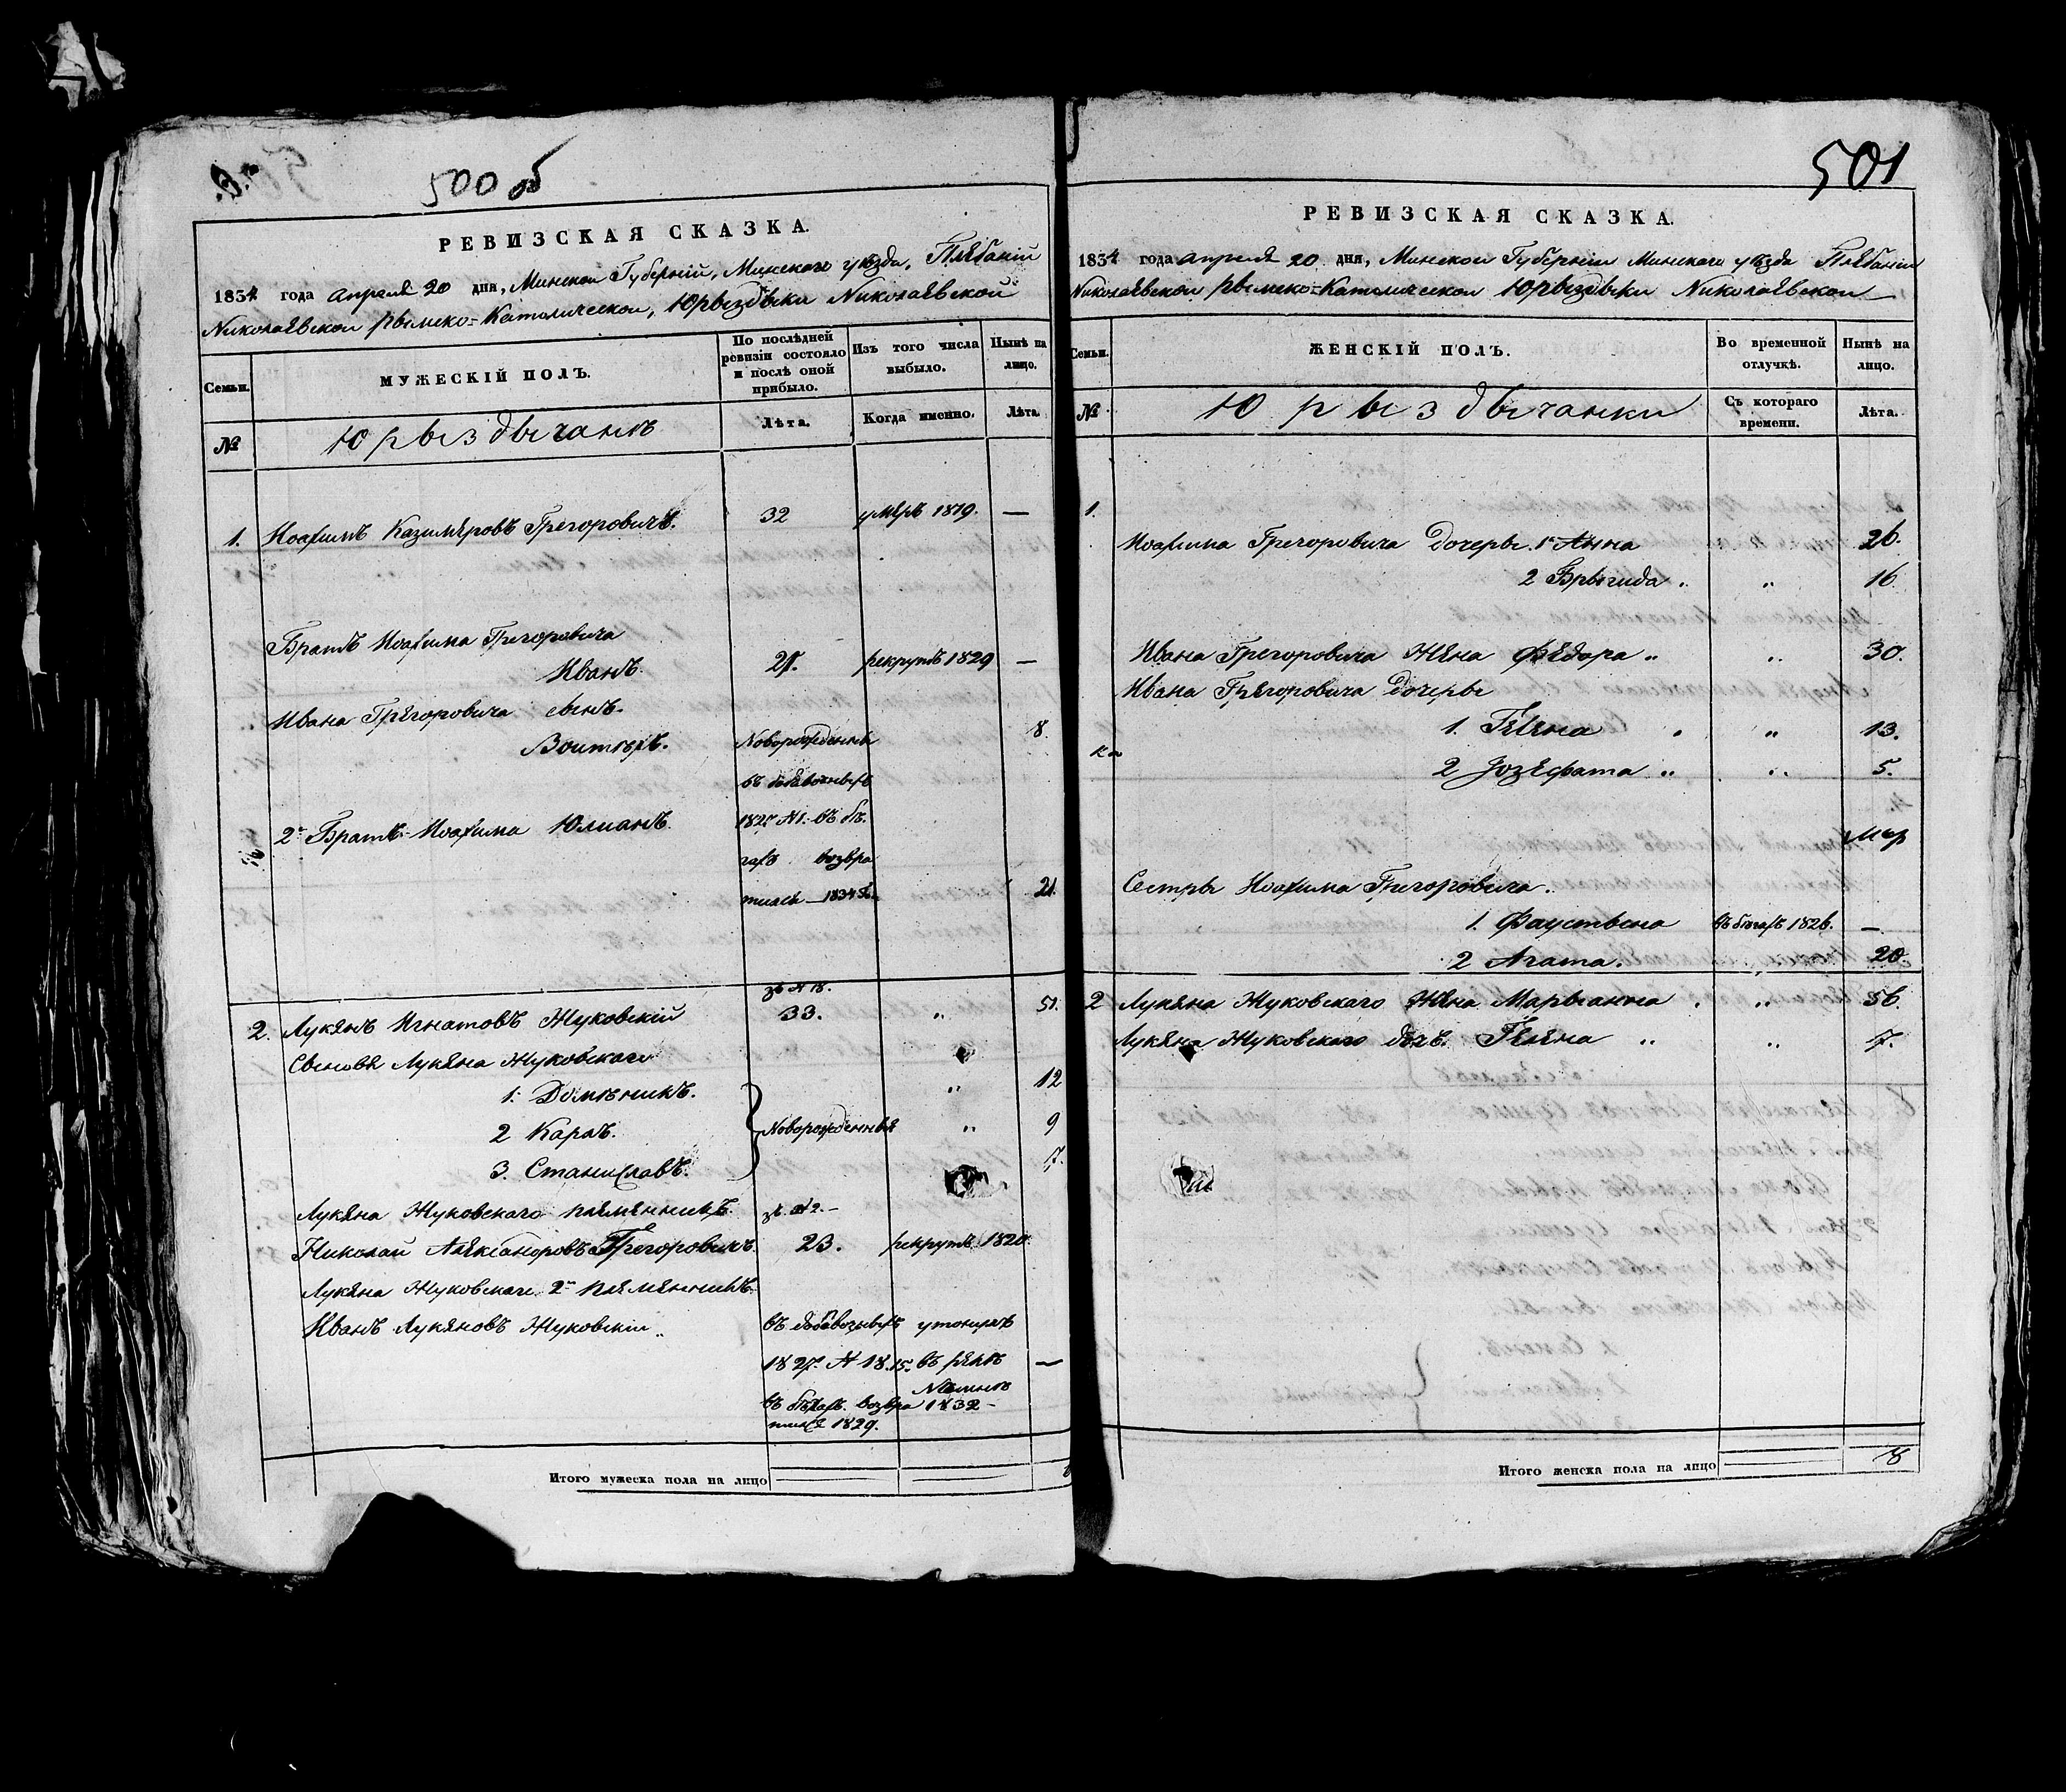 500 об
РЕВИЗСКАЯ СКАЗКА.
1834 года апреля 20 дня, Минской Губерніи, Минского уезда, Плебаніи
Николаевской рымско-Католической, Юрыздыки Николаевской
Семьи.
МУЖЕСКІЙ ПОЛЪ.
По послѣдней ревизіи состояло и послѣ оной прибыло.
Изъ того числа выбыло.
Нынѣ на лицо.
№
Юрыздычанъ
Лѣта.
Когда именно.
Лѣта.
1. Иоахимъ Казимеровъ Грегоровичъ. 32 умеръ 1819. —
Братъ Иоахима Грегоровича
Иванъ. 21. рекрутъ 1829 —
Ивана Грегоровича сынъ.
Войтехъ. Новорожденный 8
въ добавочныхъ
2й Братъ Иоахима Юліанъ. 1827 №1. въ бѣ.
гахъ возвра
тился 1834 г. 21
зъ № 18.
2. Лукянъ Игнатовъ Жуковскій 33. „ 51.
Сыновя Лукяна Жуковскаго
1. Доминикъ. „ 12
2 Карлъ. Новорожденныя „ 9
3. Станиславъ. 7.
Лукяна Жуковскаго племянникъ. зъ №2.
Николай Александровъ Грегоровичъ 23. рекрутъ 1820.
Лукяна Жуковскаго 2й племянникъ.
Иванъ Лукяновъ Жуковскій „ въ добавочныхъ утонулъ
1827. № 18. 15. въ реке —
Неминъ
въ бѣгахъ. возвра 1832
тился 1829.
Итого мужеска пола на лицо
501
РЕВИЗСКАЯ СКАЗКА.
1834 года апреля 20 дня, Минской Губерніи Минскаго уезда Плебаніи
Николаевской рымско-Католической Юрыздыки Николаевской
Семьи.
ЖЕНСКІЙ ПОЛЪ.
Во временной отлучкѣ.
Нынѣ на лицо.
№
Юрыздычанки
Съ котораго времени.
Лѣта.
1.
Иоахима Грегоровича Дочеры. 1я Анна 26.
2 Брыгида „ „ 16
Ивана Грегоровича Жена Федора „ „ 30.
Ивана Грегоровича Дочеры
1. Гелена „ 13.
2 Јозефата „ „ 5.
Сестры Иоахима Грегоровича.
1. Фаустына въ бѣгахъ 1826. —
2 Агата. „ 20
2 Лукяна Жуковскаго Жена Марыанна „ 56
Лукяна Жуковскаго дочъ. Гелена „ „ 7.
Итого женска пола на лицо 8